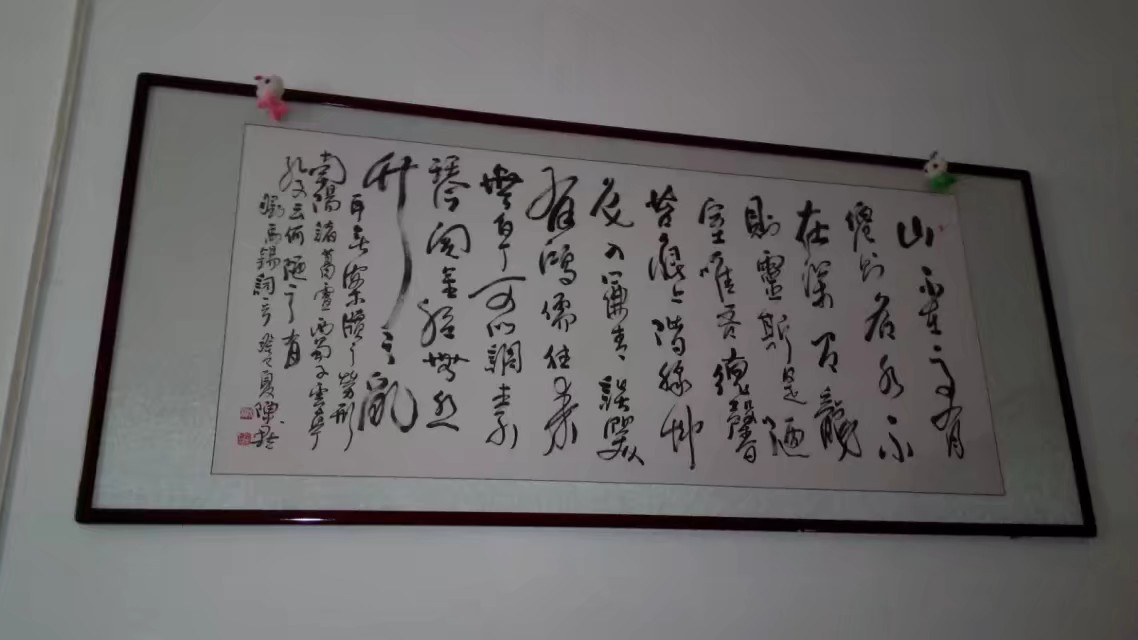 山不在高有
僊則名水不
在深有龍
則靈斯是陋
室唯吾德馨
苔痕上階綠艸
色入簾青談笑
有鴻儒往來
無白丁可以調素
琴閱金經無絲
竹之亂
耳無案牘之勞形
南陽諸葛廬西蜀子雲亭
孔子云何陋之有
劉禹錫詞 夏陳